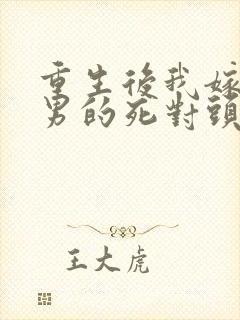 重生後我嫁
男的死對頭
王大虎